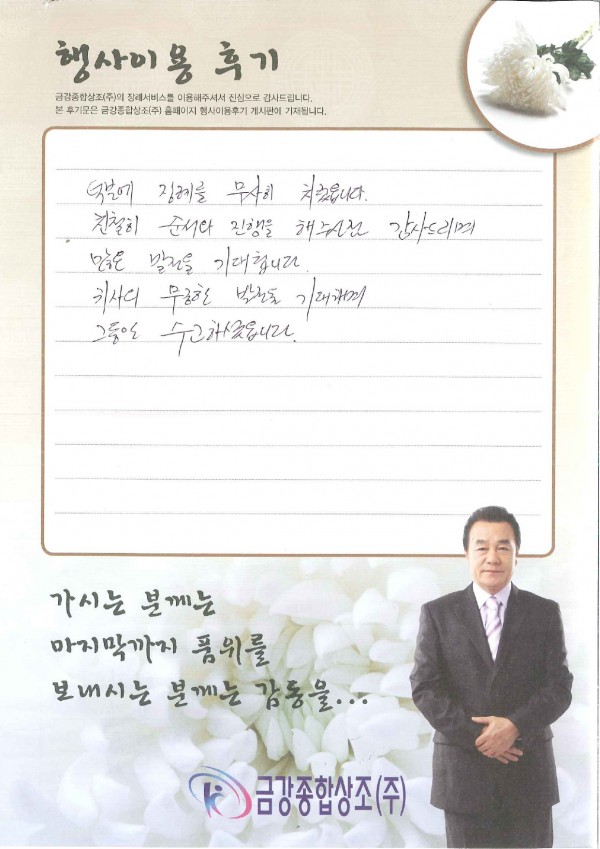 행사이용 후기
금강종합상조(주)의 장례서비스를 이용해주셔서 진심으로 감사드립니다.
본 후기문은 금강종합상조(주) 홈페이지 행사이용후기 게시판에 기재됩니다.
덕분에 장례를 무사히 치렀습니다.
친절히 순서와 진행을 해주신점 감사드리며
많은 발전을 기대합니다.
귀사의 무궁한 발전을 기대하며
그동안 수고하셨습니다.
가시는 분께는
마지막까지 품위를
보내시는 분께는 감동을...
금강종합상조(주)